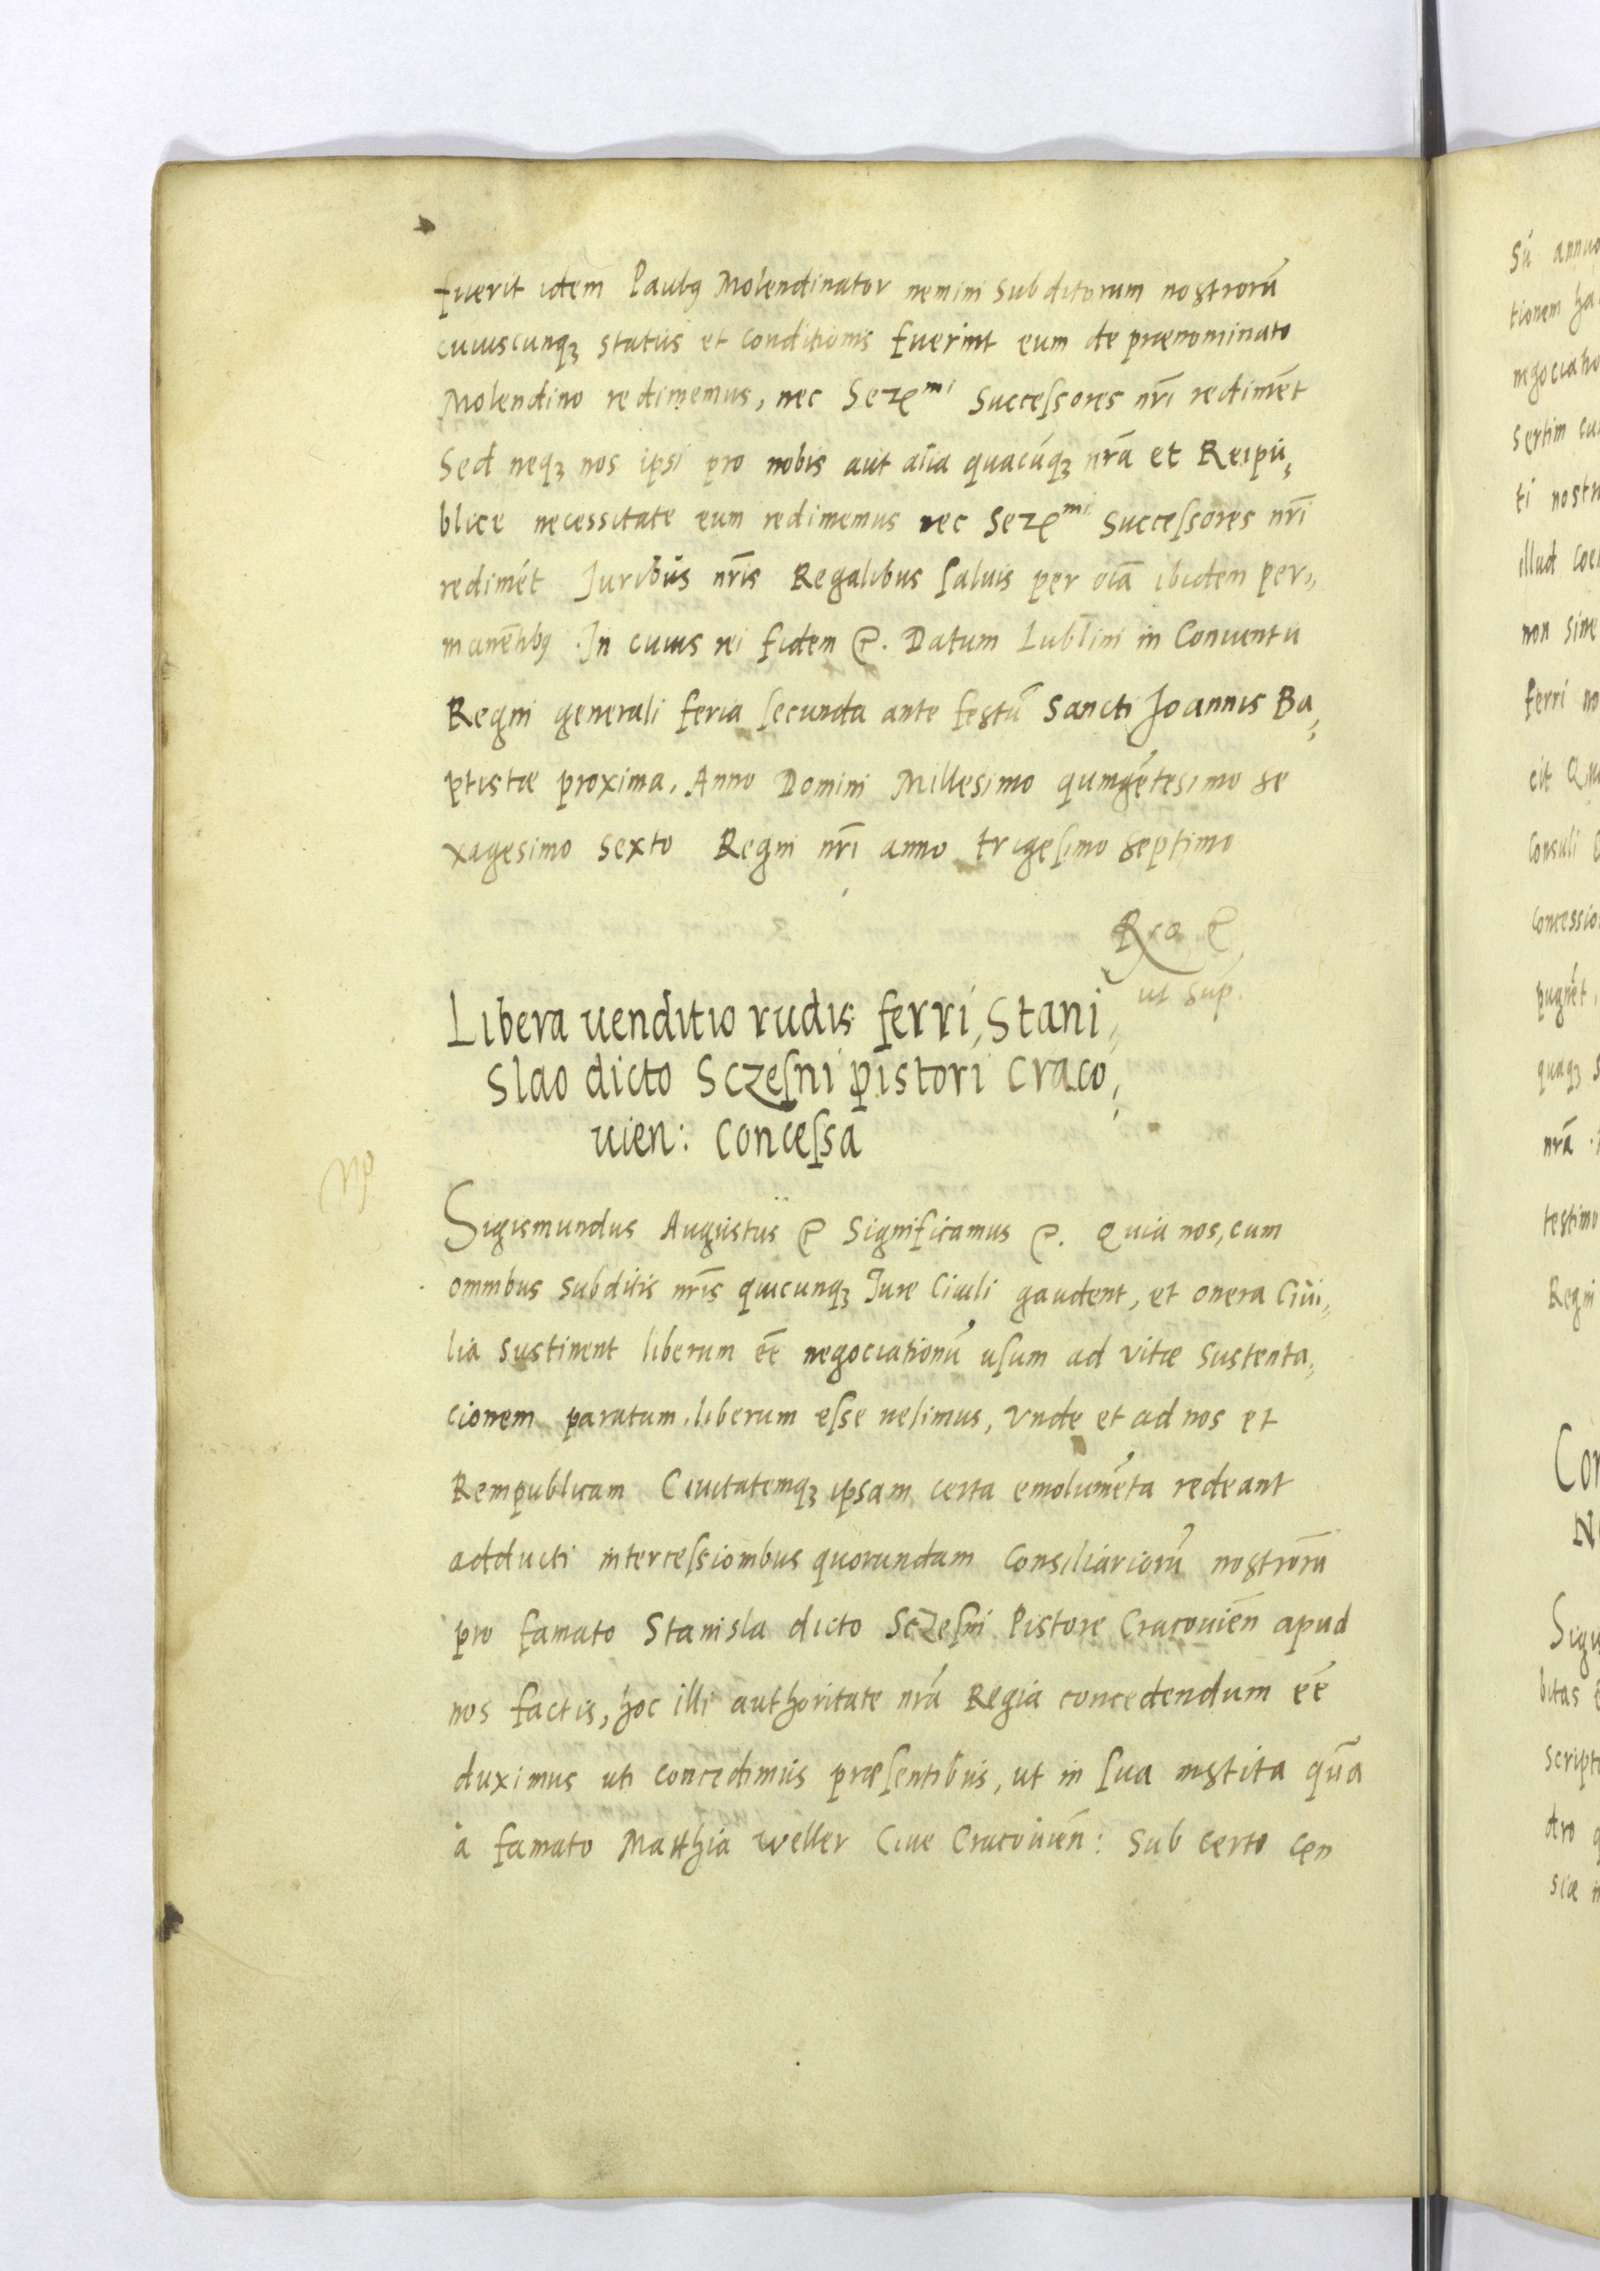 fuerit idem Paulꝰ Molendinator nemini subditorum nostrorũ
cuiuscunqꝫ status et conditionis fuerint eum de prænominato
Molendino redimemus, nec Serᵐⁱ Successores nr̃i redimẽt
Sed neqꝫ nos ipsi pro nobis aut alia quacũqꝫ nrã et Reipu,
blicæ necessitate eum redimemus nec Serᵐⁱ Successores nr̃i
redimẽt Juribus nr̃is Regalibus saluis per oĩa ibidem per,
manẽtibꝰ. In cuius rei fidem &. Datum Lublini in Conuentu
Regni generali feria secunda ante festũ Sancti Joannis Ba,
ptistæ proxima, Anno Domini Millesimo quingẽtesimo se
xagesimo sexto Regni nr̃i anno trigesimo septimo
Rᷓᷓea &
ut sup.
Libera uenditio rudis ferri, Stani,
slao dicto Sczesni pistori Craco,
uien: concessa
Sigismundus Augustus & Significamus &. Quia nos, cum
omnibus subditis nr̃is quicunqꝫ Jure Ciuili gaudent, et onera Ciui,
lia sustinent liberum eẽ negociationũ usum ad vitæ sustenta,
cionem paratum, liberum esse uelimus, vnde et ad nos et
Rempublicam Ciuitatemqꝫ ipsam certa emolumẽta redeant
adducti intercessionibus quorundam Consiliariorũ nostrorũ
pro famato Stanisla dicto Sczesni Pistore Cracouieñ apud
nos factis, hoc illi authoritate nrã Regia concedendum eẽ
duximus uti concedimus præsentibus, ut in sua instita quã
à famato Matthia Weller Ciue Cracouieñ: Sub certo cen